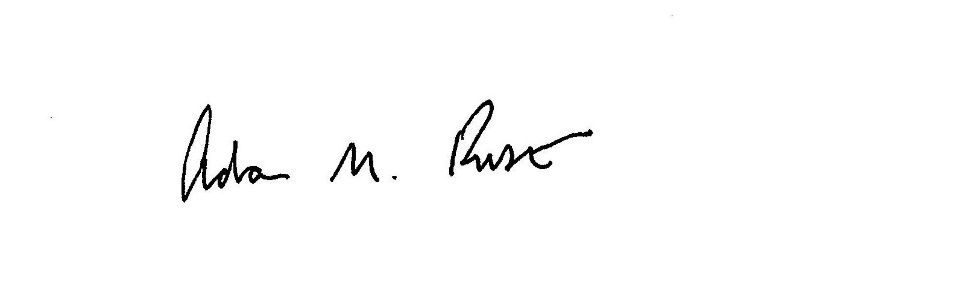 Adam M. Rust